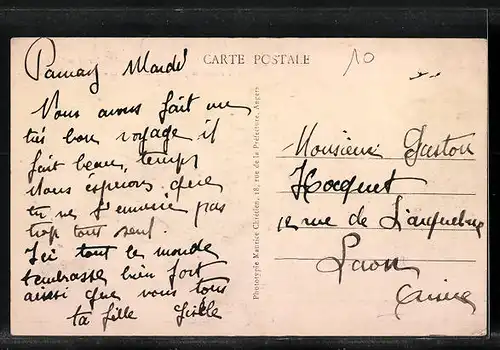 Parnay Mardi
CARTE POSTALE
10
Vous avons fait un
très bon voyage il
fait beau temps
Nous espérons que
tu ne t'ennuie pas
trop tout seul.
Ici tout le monde
t'embrasse bien fort
ainsi que vous tous
ta fille Gisèle
Phototypie Maurice Chrétien, 18, rue de la Préfecture, Angers
Monsieur Gaston
Hocquet
rue de L'arquebuse
Laon
Aisne